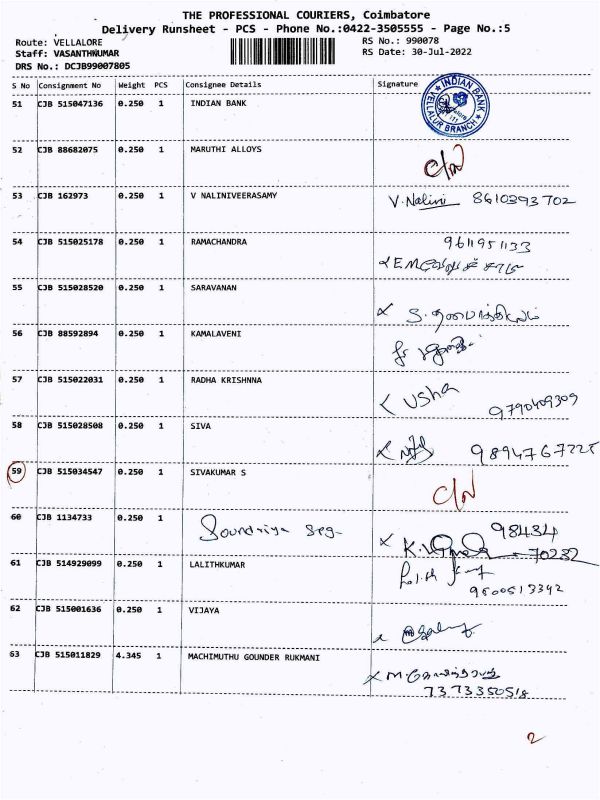 THE PROFESSIONAL COURIERS, Coimbatore
Delivery Runsheet - PCS - Phone No.:0422-3505555 - Page No.:5
Route: VELLALORE RS No.: 990078
Staff: VASANTHKUMAR RS Date: 30-Jul-2022
DRS No.: DCJB99007805
S No Consignment No Weight PCS Consignee Details Signature
51 CJB 515047136 0.250 1 INDIAN BANK
INDIAN BANK
VELLALUR BRANCH
52 CJB 88682075 0.250 1 MARUTHI ALLOYS
53 CJB 162973 0.250 1 V NALINIVEERASAMY V.Nalini 8610393702
54 CJB 515025178 0.250 1 RAMACHANDRA 9611951133
55 CJB 515028520 0.250 1 SARAVANAN
56 CJB 88592894 0.250 1 KAMALAVENI
57 CJB 515022031 0.250 1 RADHA KRISHNNA Usha
9790409309
58 CJB 515028508 0.250 1 SIVA
9894767225
59 CJB 515034547 0.250 1 SIVAKUMAR S
60 CJB 1134733 0.250 1 98434
70232
61 CJB 514929099 0.250 1 LALITHKUMAR
9600513342
62 CJB 515001636 0.250 1 VIJAYA
63 CJB 515011829 4.345 1 MACHIMUTHU GOUNDER RUKMANI
7373350518
2